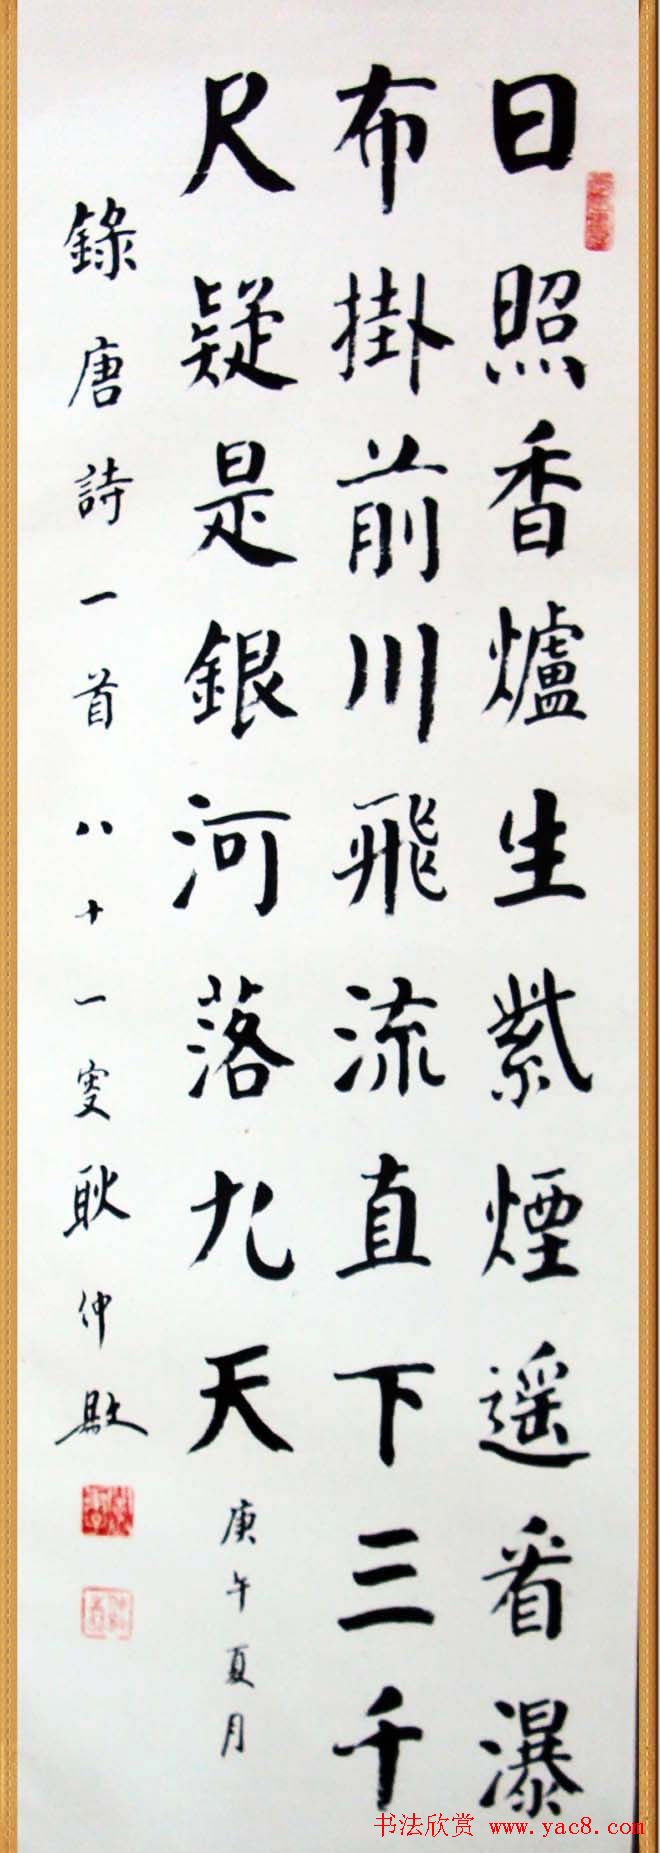 日照香爐生紫煙遥看瀑
布掛前川飛流直下三千
尺疑是銀河落九天
庚午夏月
錄唐詩一首 八十一叟耿仲
书法欣赏 www.yac8.com